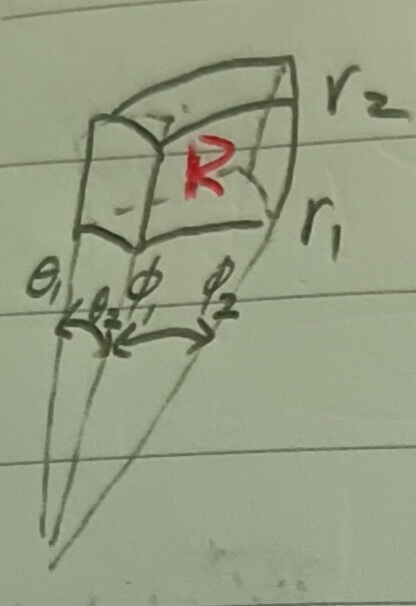 r₂
R
r₁
θ₁ θ₂ ϕ₁ ϕ₂